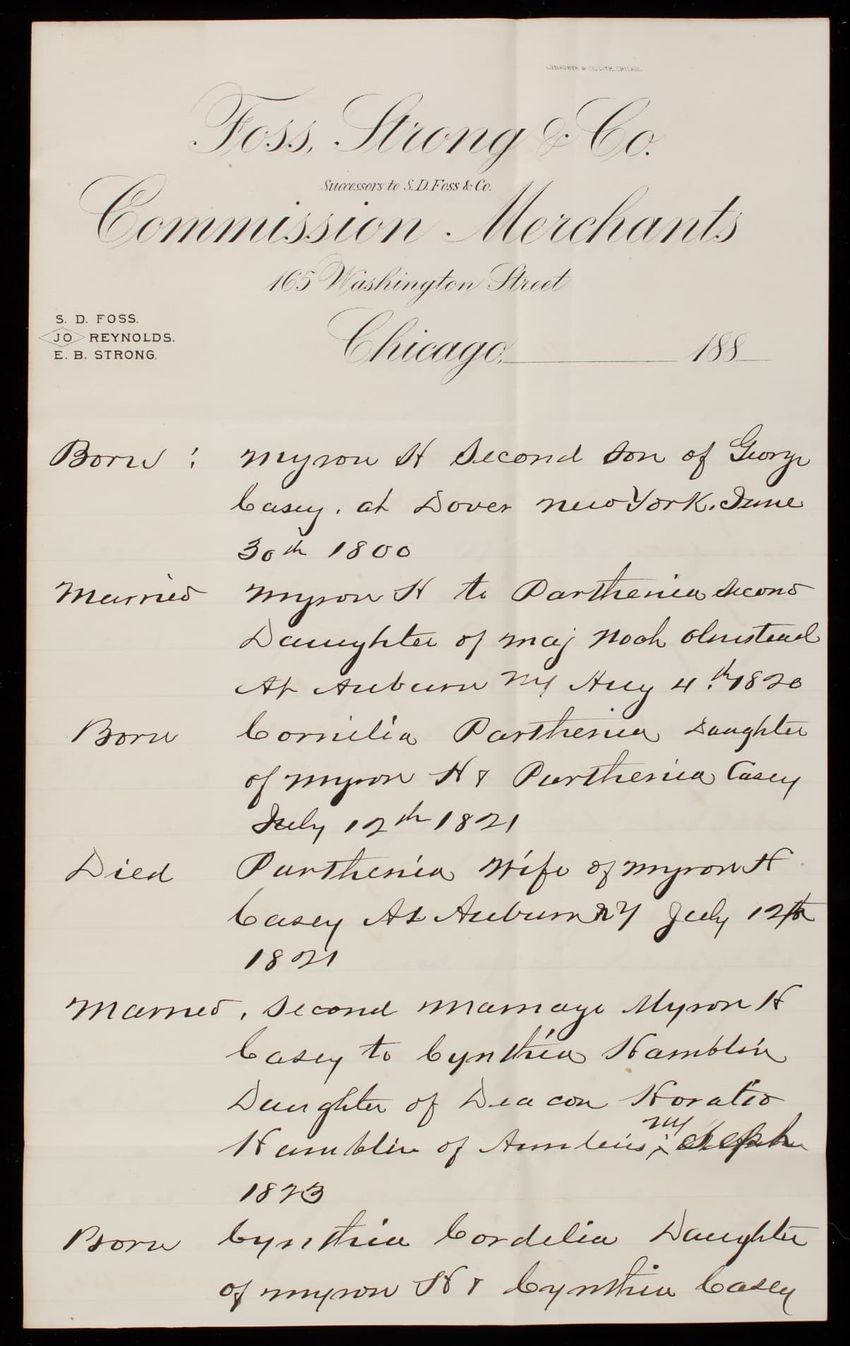 Foss, Strong & Co.
Successors to S. D. Foss & Co.
Commission Merchants
165 Washington Street
S. D. FOSS.
JO REYNOLDS.
E. B. STRONG.
Chicago, 188
Born : Myron H Second Son of George
Casey. at Dover New York. June
30th 1800
Married Myron H to Parthenia Second
Daughter of Maj Noah Olmstead
At Auburn NY Aug 4th 1820
Born Cornelia Parthenia Daughter
of Myron H & Parthenia Casey
July 12th 1821
Died Parthenia Wife of Myron H
Casey At Auburn NY July 12th
1821
Married, Second Marriage Myron H
Casey to Cynthia Hamblin
Daughter of Deacon Horatio
Hamblin of NY
1823
Born Cynthia Cordelia Daughter
of Myron H & Cynthia Casey